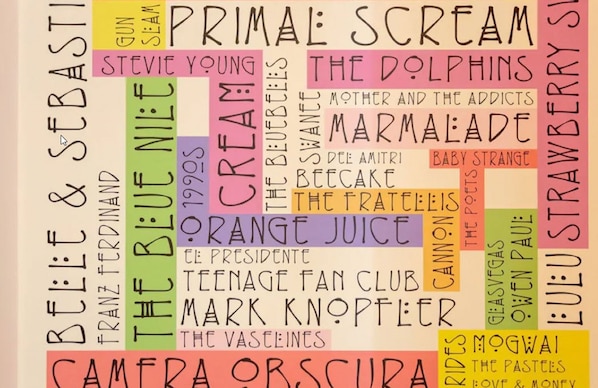 BELLE & SEBASTI
GUN
SLAM
PRIMAL SCREAM
STEVIE YOUNG
THE DOLPHINS
STRAWBERRY SW
FRANZ FERDINAND
THE BLUE NILE
1990S
CREAM
THE BLUEBELLS
SWANEE
MOTHER AND THE ADDICTS
MARMALADE
DEL AMITRI
BABY STRANGE
BEECAKE
THE FRATELLIS
THE POETS
ORANGE JUICE
CANNON
EL PRESIDENTE
TEENAGE FAN CLUB
MARK KNOPFLER
GLASVEGAS
OWEN PAUL
LULU
THE VASELINES
CAMERA OBSCURA
RIDES
MOGWAI
THE PASTELS
LOVE & MONEY